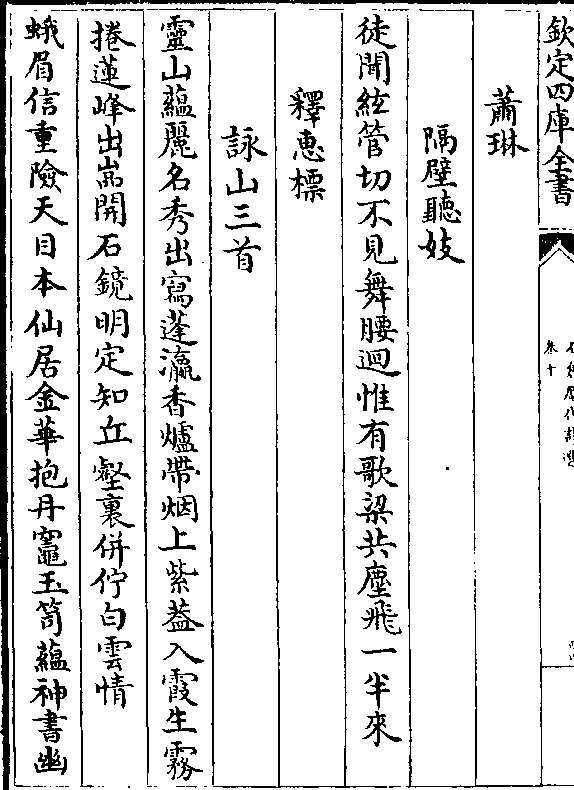 欽定四庫全書
卷十
蕭琳
隔壁聽妓
徒聞絃管切不見舞腰迴惟有歌梁共塵飛一半來
釋惠標
詠山三首
靈山蘊麗名秀出寫蓬瀛香爐帶烟上紫葢入霞生霧
捲蓮峰出嵓開石鏡明定知丘壑裏併佇白雲情
蛾眉信重險天目本仙居金華抱丹竈玉笥蘊神書幽